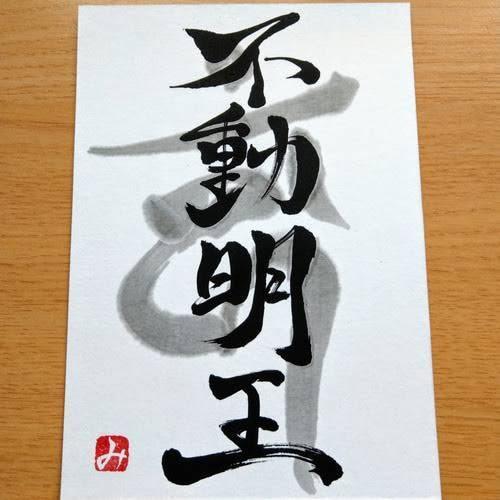 不動明王
み